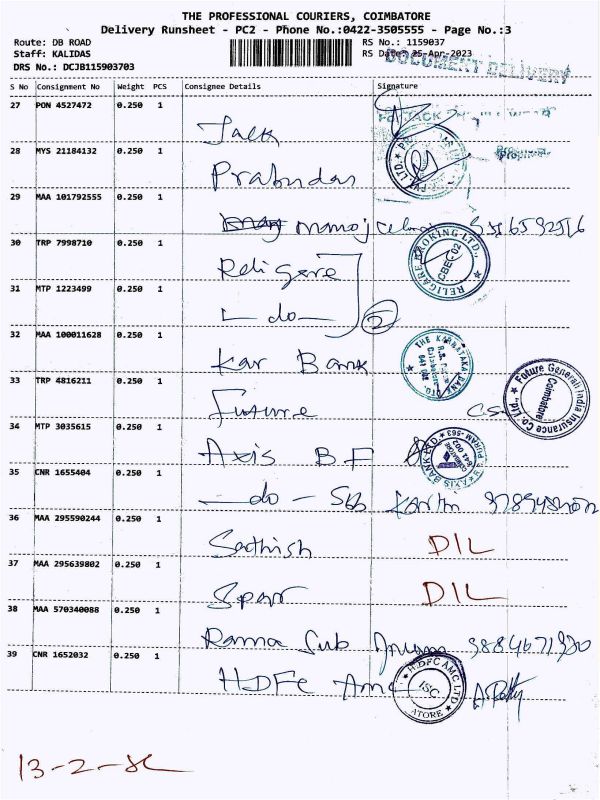 THE PROFESSIONAL COURIERS, COIMBATORE
Delivery Runsheet - PC2 - Phone No.:0422-3505555 - Page No.:3
Route: DB ROAD RS No.: 1159037
Staff: KALIDAS RS Date: 25-Apr-2023
DRS No.: DCJB115903703
DOCUMENT DELIVERY
S No Consignment No Weight PCS Consignee Details Signature
27 PON 4527472 0.250 1
Jack
28 MYS 21184132 0.250 1
Prabudas
29 MAA 101792555 0.250 1
manoj
30 TRP 7998710 0.250 1
Religare
RELIGARE BROKING LTD.,
CBE-02
31 MTP 1223499 0.250 1
do
2
32 MAA 100011628 0.250 1
Kar Bank
THE KARNATAKA BANK LTD.
33 TRP 4816211 0.250 1
Future C.S
Future Generali India Insurance Co. Ltd.,
Coimbatore
34 MTP 3035615 0.250 1
Axis BF
AXIS BANK LTD
35 CNR 1655404 0.250 1
do - SBB
36 MAA 295590244 0.250 1
Sathish DIL
37 MAA 295639802 0.250 1
Spar DIL
38 MAA 570340088 0.250 1
Rama Sub
39 CNR 1652032 0.250 1
HDFC Amc
HDFC AMC LTD
ISC
13-2-